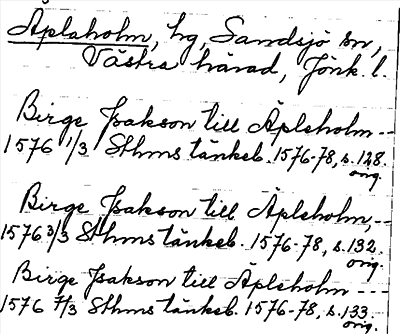 Äplaholm, hg, Sandsjö sn,
Västra härad, Jönk. l.
Birge Isakson till Äpleholm --
1576 1/3 Sthms tänkeb. 1576-78, s. 128.
orig.
Birge Isakson till Äpleholm, --
1576 3/3 Sthms tänkeb. 1576-78, s. 132.
orig.
Birge Isakson till Äpleholm ---
1576 7/3 Sthms tänkeb. 1576-78, s. 133.
orig.